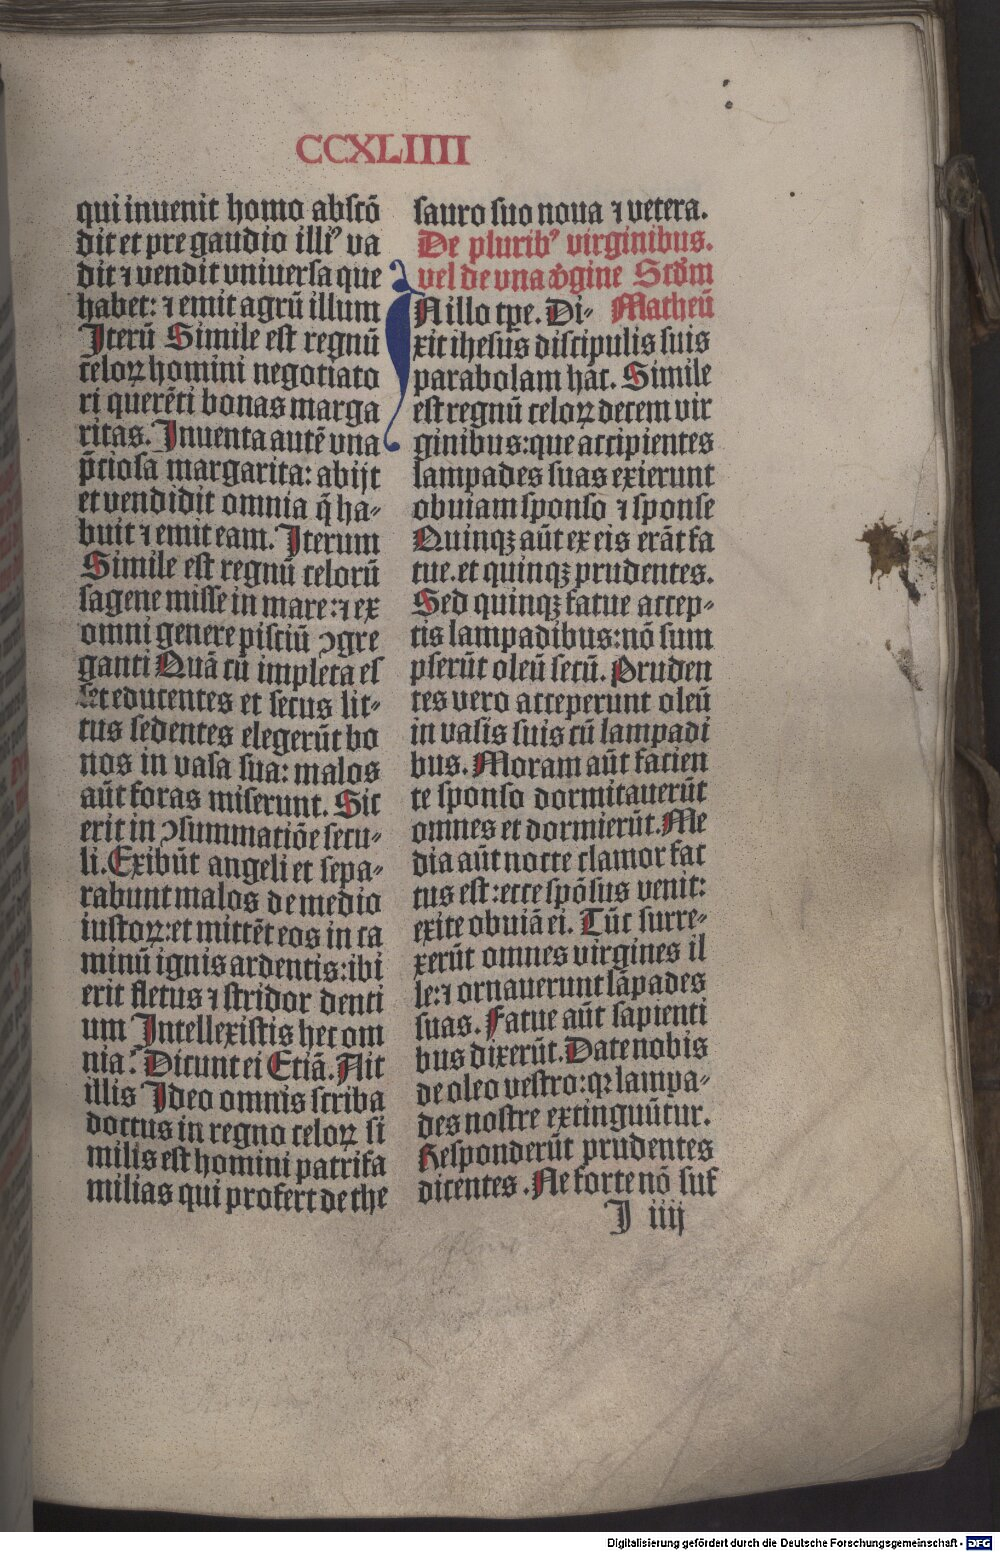 CCXLIIII
qui inuenit homo abscō
dit et pre gaudio illiꝰ va
dit ⁊ vendit vniuersa que
habet: ⁊ emit agrū illum
Iterū Simile est regnū
celoꝝ homini negotiato
ri querēti bonas marga
ritas. Inuenta autē vna
p̄ciosa margarita: abijt
et vendidit omnia q̄ ha-
buit ⁊ emit eam. Iterum
Simile est regnū celorū
sagene misse in mare: ⁊ ex
omni genere pisciū ꝯgre
ganti Quā cū impleta es
set educentes et secus lit-
tus sedentes elegerūt bo
nos in vasa sua: malos
aūt foras miserunt. Sic
erit in ꝯsummatiōe secu-
li. Exibūt angeli et sepa-
rabunt malos de medio
iustoꝝ: et mittēt eos in ca
minū ignis ardentis: ibi
erit fletus ⁊ stridor denti
um Intellexistis hec om
nia? Dicunt ei Etiā. Ait
illis Ideo omnis scriba
doctus in regno celoꝝ si
milis est homini patrifa
milias qui profert de the
sauro suo noua ⁊ vetera.
De pluribꝰ virginibus.
vel de vna v̓gine Scd̄m
Matheū
IN illo tꝑe. Di-
xit ihesus discipulis suis
parabolam hāc. Simile
est regnū celoꝝ decem vir
ginibus: que accipientes
lampades suas exierunt
obuiam sponso ⁊ sponse
Quinqꝫ aūt ex eis erāt fa
tue. et quinqꝫ prudentes.
Sed quinqꝫ fatue accep-
tis lampadibus: nō sum
pserūt oleū secū. Pruden
tes vero acceperunt oleū
in vasis suis cū lampadi
bus. Moram aūt facien
te sponso dormitauerūt
omnes et dormierūt. Me
dia aūt nocte clamor fac
tus est: ecce spōsus venit:
exite obuiā ei. Tūc surre-
xerūt omnes virgines il
le: ⁊ ornauerunt lāpades
suas. Fatue aūt sapienti
bus dixerūt. Date nobis
de oleo vestro: qꝛ lampa-
des nostre extinguūtur.
Responderūt prudentes
dicentes. Ne forte nō suf
I iiij
Digitalisierung gefördert durch die Deutsche Forschungsgemeinschaft - DFG